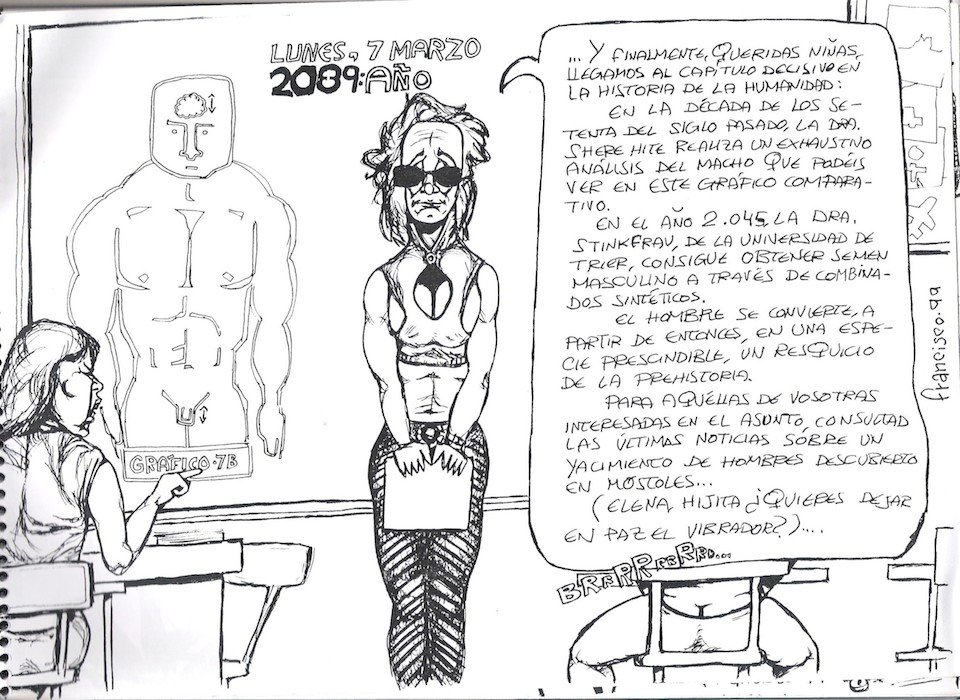 LUNES, 7 MARZO
2089: AÑO
... Y FINALMENTE, QUERIDAS NIÑAS,
LLEGAMOS AL CAPÍTULO DECISIVO EN
LA HISTORIA DE LA HUMANIDAD:
EN LA DÉCADA DE LOS SE-
TENTA DEL SIGLO PASADO, LA DRA.
SHERE HITE REALIZA UN EXHAUSTIVO
ANÁLISIS DEL MACHO QUE PODÉIS
VER EN ESTE GRÁFICO COMPARA-
TIVO.
EN EL AÑO 2.045, LA DRA.
STINKFRAU, DE LA UNIVERSIDAD DE
TRIER, CONSIGUE OBTENER SEMEN
MASCULINO A TRAVÉS DE COMBINA-
DOS SINTÉTICOS.
EL HOMBRE SE CONVIERTE, A
PARTIR DE ENTONCES, EN UNA ESPE-
CIE PRESCINDIBLE, UN RESQUICIO
DE LA PREHISTORIA.
PARA AQUÉLLAS DE VOSOTRAS
INTERESADAS EN EL ASUNTO, CONSULTAD
LAS ÚLTIMAS NOTICIAS SOBRE UN
YACIMIENTO DE HOMBRES DESCUBIERTO
EN MÓSTOLES...
(ELENA, HIJITA ¿QUIERES DEJAR
EN PAZ EL VIBRADOR?)....
GRÁFICO-7B
francisco.99